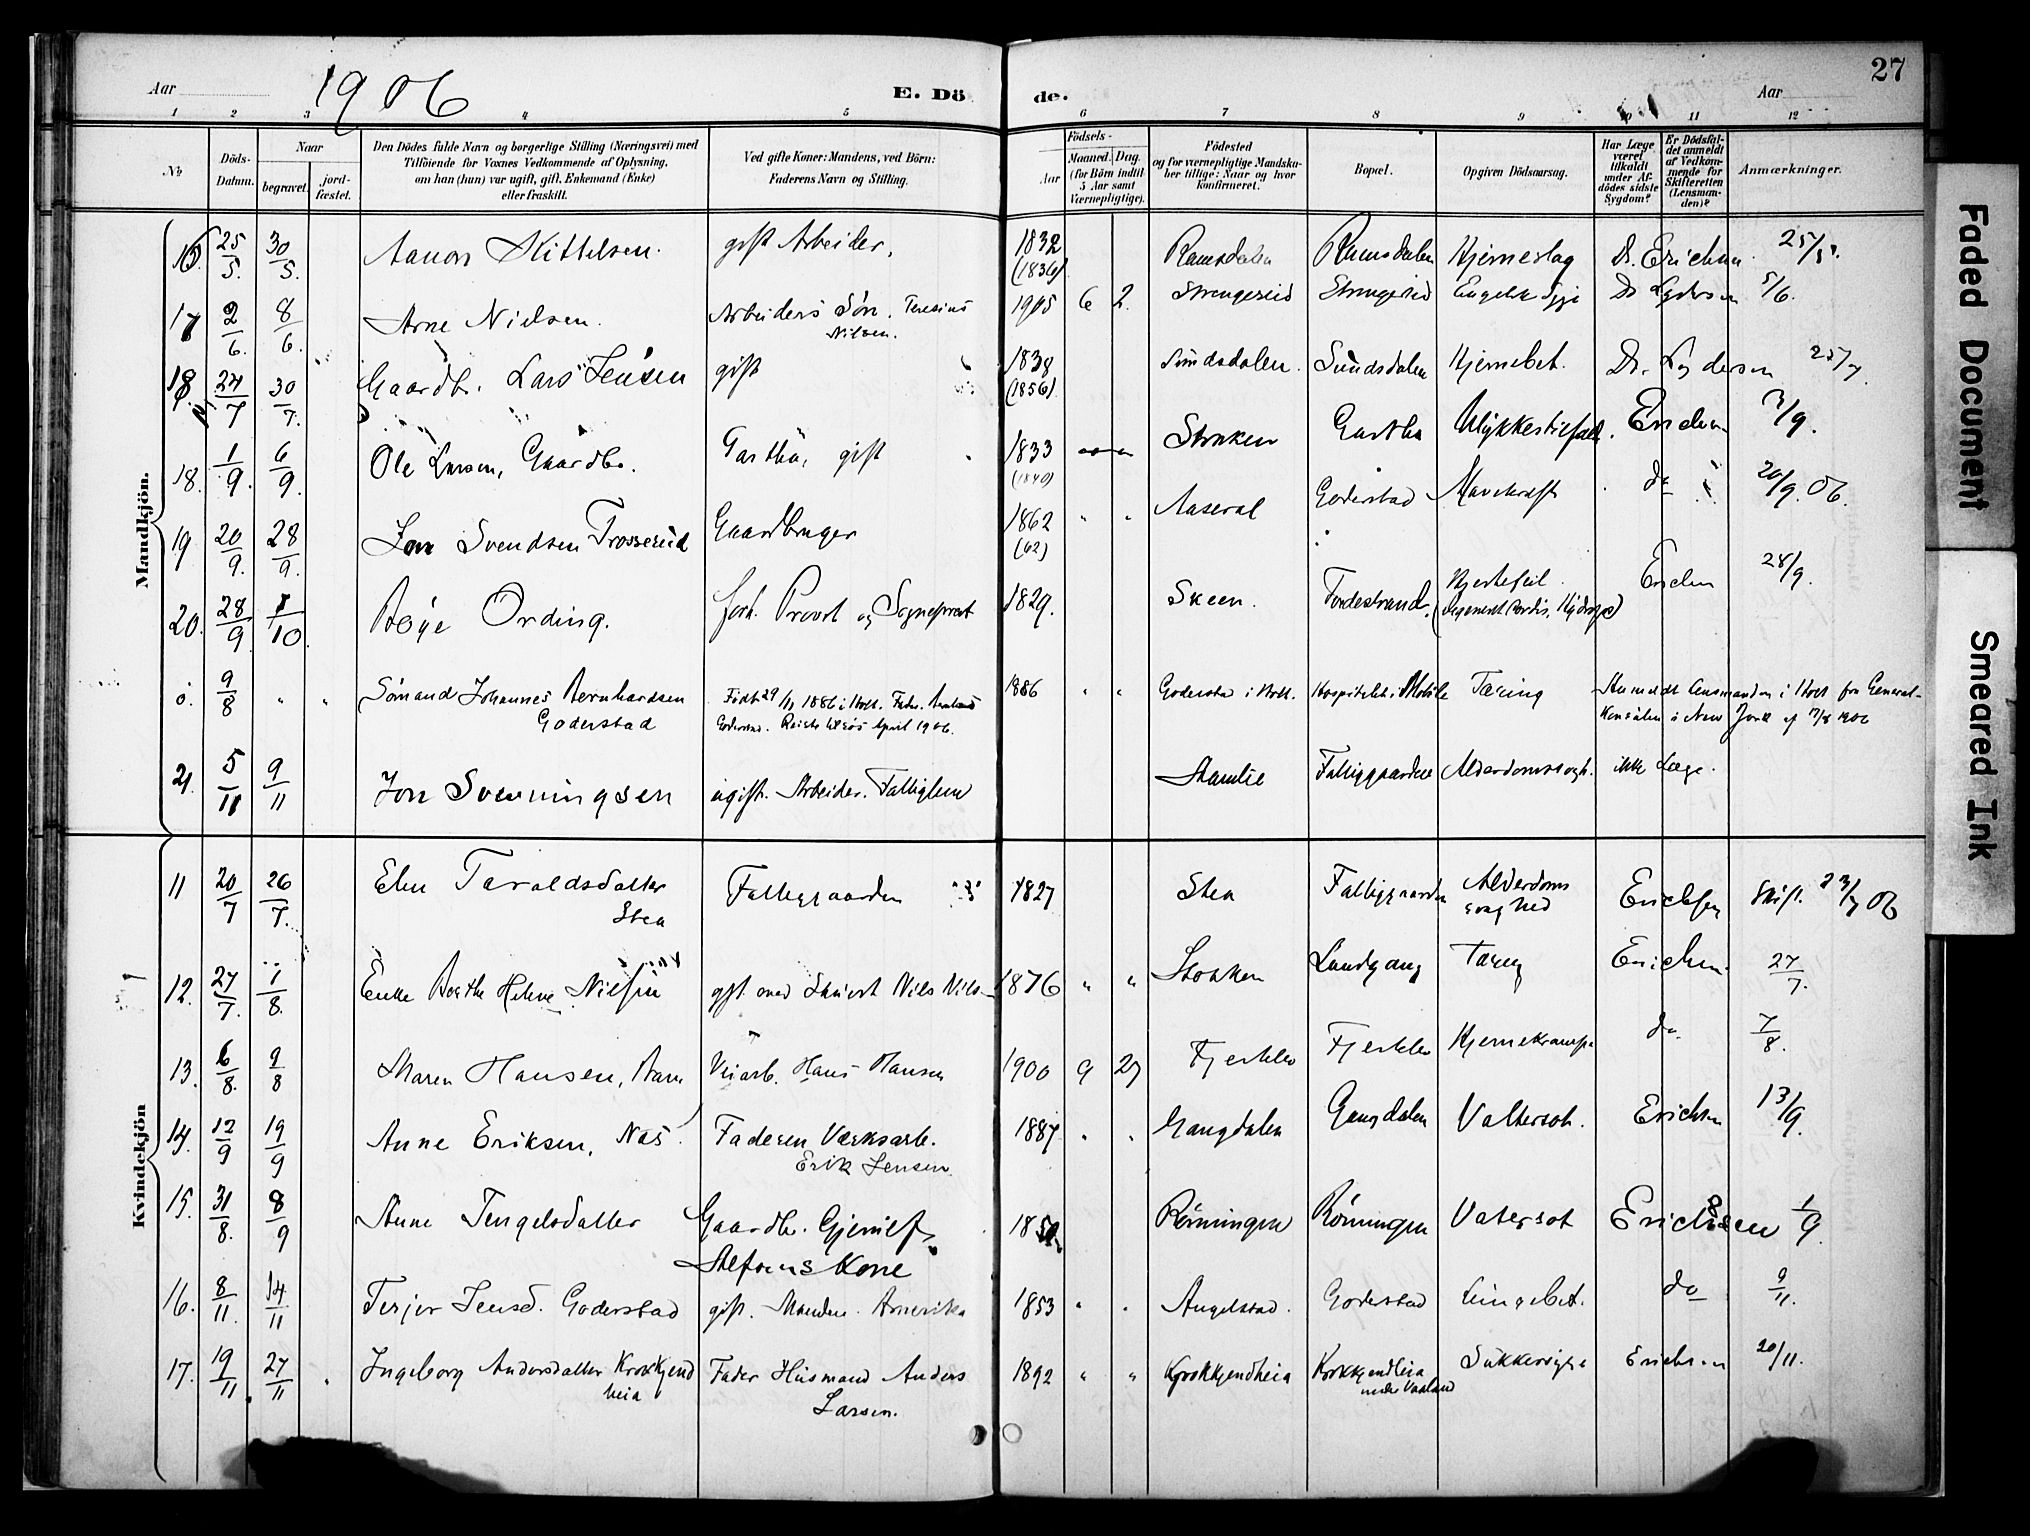 27
Aar 1906 E. Dö de. Aar
1 2 3 4 5 6 7 8 9 10 11 12
No
Döds-Datum.
Naar
begravet.
jordfæstet.
Den Dödes fulde Navn og borgerlige Stilling (Næringsvei) med
Tilföiende for Voxnes Vedkommende af Oplysning,
om han (hun) var ugift, gift, Enkemand (Enke)
eller fraskilt.
Ved gifte Koner: Mandens, ved Börn:
Faderens Navn og Stilling.
Födsels-
Aar
Maaned. Dag.
(for Börn indtil
5 Aar samt
Værnepligtige).
Födested
og for værnepligtige Mandska-
ber tillige: Naar og hvor
konfirmeret.
Bopæl.
Opgiven Dödsaarsag.
Har Læge
været
tilkaldt
under Af-
dödes sidste
Sygdom?
Er Dödsfal-
det anmeldt
af Vedkom-
mende for
Skifteretten
(Lensman-
den)?
Anmærkninger.
Mandkjön.
16. 25/5 30/5 Aanon Kittelsen. gift Arbeider, 1832 (1836) Ramsdalen Ramsdalen Hjerneslag Dr. Erichsen 25/5.
17 2/6. 8/6. Arne Nielsen. Arbeiders Søn. Teresius Nilsen. 1905 6 2. Strengereid Strengereid Engelsk Syge Dr Lydersen 5/6.
18 24/7 30/7. Gaardbr. Lars Jensen gift 1838 (1856) Sundsdalen. Sundsdalen Hjernebet. Dr. Lydersen 25/7.
18. 1/9. 6/9. Ole Larsen, Gaardbr. Gartha, gift 1833 (1840) Stokken Gartha Ulykkestilfæld. Erichsen 3/9.
19 20/9. 28/9. Jon Svendsen Trossereid Gaardbruger 1862 (62) " " Aaseral Goderstad Mavekræft do 20/9. 06.
20. 28/9 1/10. Bøye Ording. forh. Provst og Sogneprest 1829. Skeen. Tvedestrand. Hjertefeil. Erichsen 28/9.
0. 9/8 " " Sømand Johannes Bernhardsen Goderstad Født 29/11 1886 i Holt. Fader. Bernhard Goderstad. Reiste tilsøs April 1906. 1886 " " Goderstad i Holt. Hospitalet i Mobile Tæring Anmeldt Lensmanden i Holt fra General-
Konsulen i New York af 17/8 1906
21. 5/11 9/11 Jon Svenningsen ugift. Arbeider. Fattiglem Fattiggaarden Alderdomssvagh. ikke Læge.
Kvindekjön
11 20/7 26/7. Elen Taraldsdatter Stea Fattiggaarden 1827 Stea Fattiggaarden Alderdoms svaghed Erichsen Skift. 23/7 06
12. 27/7. 1/8. Enke Berthe Helene Nilsen gift med Nils Nils- 1876 " " Stokken Landgang Tæring Erichsen 27/7.
13. 6/8. 9/8 Maren Hansen, Barn Veiarb. Hans Hansen 1900 9 29 Fjerkleiv Fjerkleiv Hjernekrampe do 7/8.
14. 12/9 19/9 Anne Eriksen, Nas Faderen Værksarb. Erik Jensen. 1887 " " Gangdalen Gangdalen Vattersot. Erichsen 13/9.
15. 31/8. 8/9 Anne Tengelsdatter Gaardbr. Gjerulf Alefsens Kone Rønningen Rønningen Vatersot Erichsen 1/9.
16. 8/11. 14/11 Terjer Jensd. Goderstad gift. Manden. Amerika 1853 " " Angelstad. Goderstad Lungebet. do 9/11.
17. 19/11 27/11 " Ingeborg Andersdatter Krokkjend heia Fader Husmand Anders Larsen. 1892 " " Krokkjendheia Krokkjendheia under Vaaland Sukkersyge Erichsen 20/11.
Faded Document
Smeared Ink